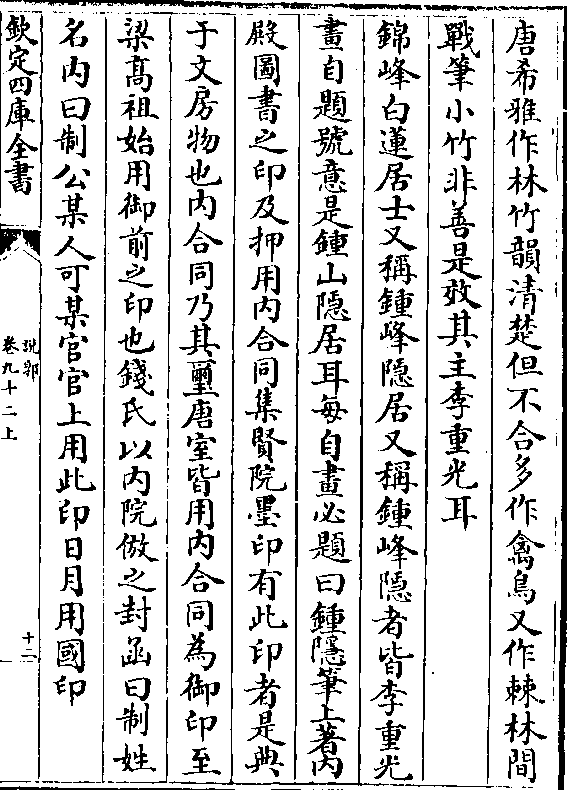 唐希雅作林竹韻清楚但不合多作禽鳥又作棘林間
戰筆小竹非善是效其主李重光耳
錦峰白蓮居士又稱鍾峰隱居又稱鍾峰隱者皆李重光
畫自題號意是鍾山隱居耳每自畫必題曰鍾隱筆上著內
殿圖書之印及押用內合同集賢院墨印有此印者是典
于文房物也內合同乃其璽唐室皆用內合同為御印至
梁髙祖始用御前之印也錢氏以內院倣之封函曰制姓
名內曰制公某人可某官官上用此印日月用國印
欽定四庫全書
説郛
卷九十二上
十二